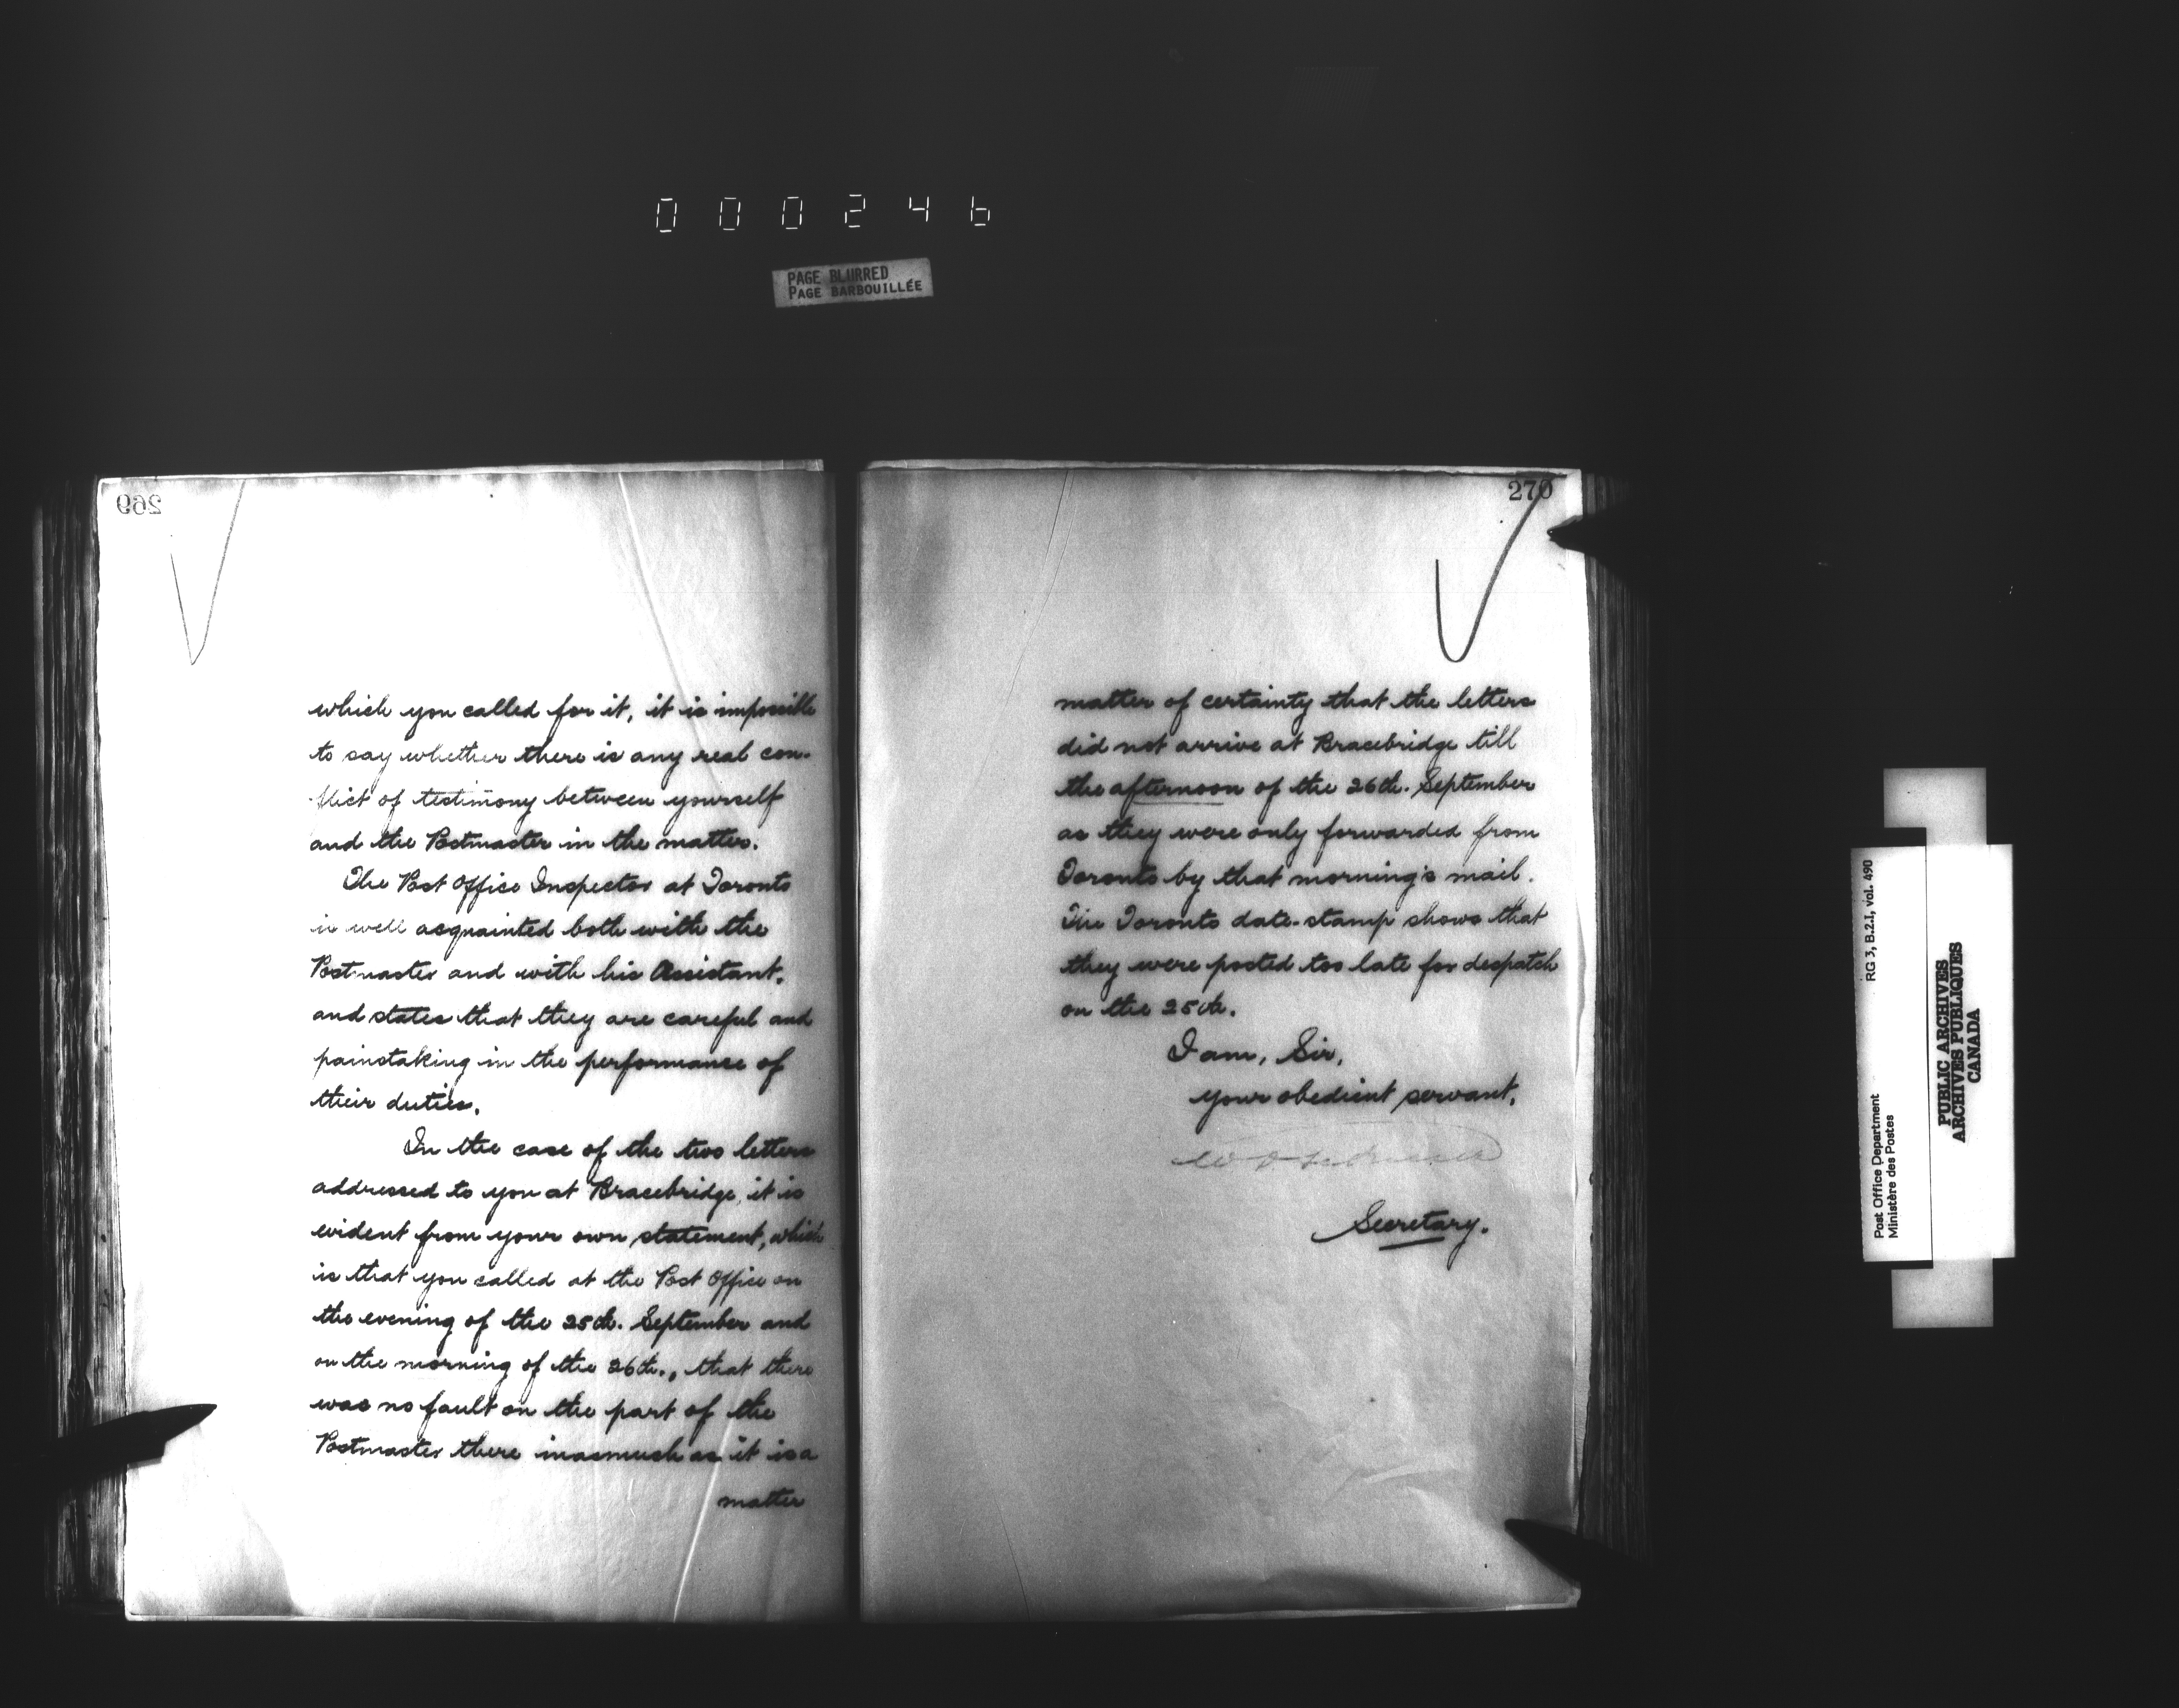 000246
PAGE BLURRED
PAGE BARBOUILLÉE
269
which you called for it, it is impossible
to say whether there is any real con-
flict of testimony between yourself
and the Postmaster in the matter.
The Post Office Inspector at Toronto
is well acquainted both with the
Postmaster and with his Assistant,
and states that they are careful and
painstaking in the performance of
their duties.
In the case of the two letters
addressed to you at Bracebridge, it is
evident from your own statement, which
is that you called at the Post Office on
the evening of the 25th. September and
on the morning of the 26th., that there
was no fault on the part of the
Postmaster there inasmuch as it is a
matter
270
matter of certainty that the letters
did not arrive at Bracebridge till
the afternoon of the 26th. September
as they were only forwarded from
Toronto by that morning's mail.
The Toronto date-stamp shows that
they were posted too late for despatch
on the 25th.
I am, Sir,
your obedient servant,
Secretary.
RG 3, B.2.1, vol. 490
Post Office Department
Ministère des Postes
PUBLIC ARCHIVES
ARCHIVES PUBLIQUES
CANADA